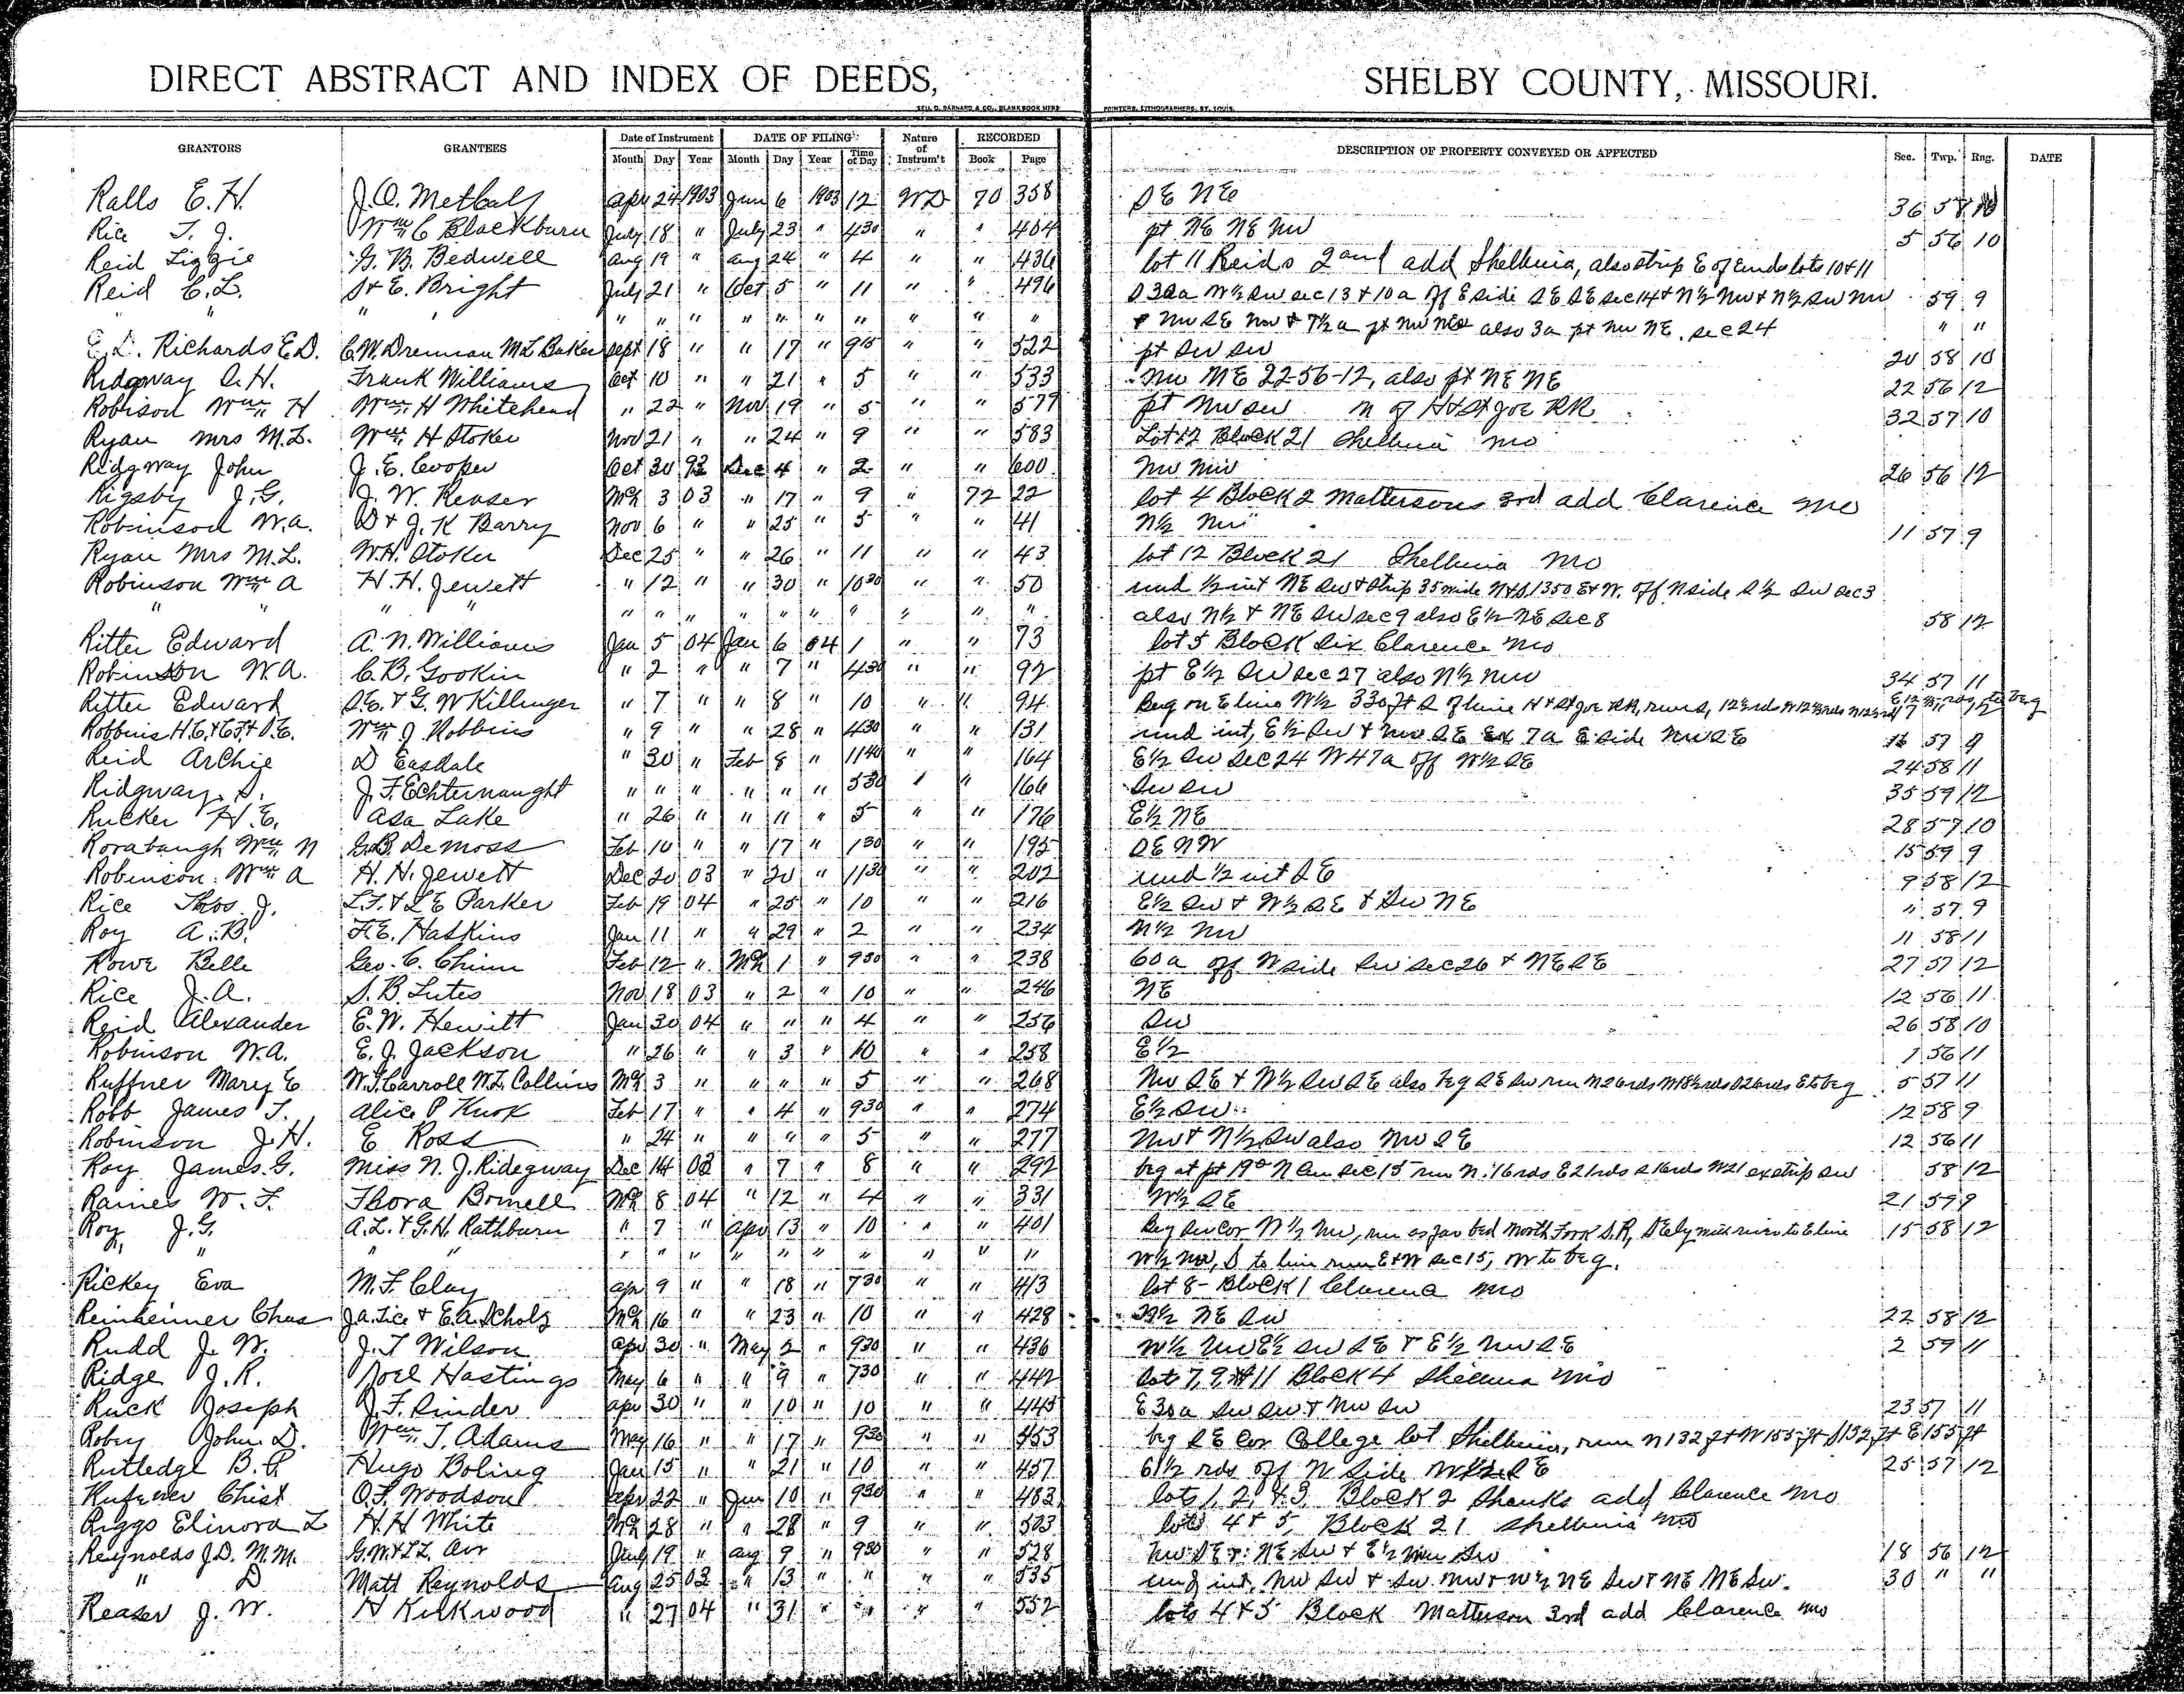 DIRECT ABSTRACT AND INDEX OF DEEDS, SHELBY COUNTY, MISSOURI.
GEO. D. BARNARD & CO., BLANK BOOK MFRS PRINTERS, LITHOGRAPHERS, ST. LOUIS.
GRANTORS GRANTEES Date of Instrument DATE OF FILING Nature of Instrum't RECORDED DESCRIPTION OF PROPERTY CONVEYED OR AFFECTED Sec. Twp. Rng. DATE
Month Day Year Month Day Year Time of Day Book Page
Ralls E. H. J. O. Metcalf Apr 24 1903 Jun 6 1903 12 WD 70 358 SE NE 36 58
Rice T. J. Wm C Blackburn July 18 " July 23 " 430 " " 404 pt NE NE NW 5 56 10
Reid Lizzie G. B. Bedwell Aug 19 " Aug 24 " 4 " " 436 lot 11 Reids 2nd add Shelbina, also strip E of Ends lots 10 & 11
Reid C. L. S & E. Bright July 21 " Oct 5 " 11 " " 496 S 30a W½ SW sec 13 & 10a off E side SE SE sec 14 & N½ NW & N½ SW NW 59 9
" " " " " " " " " " " " " & NW SE NW & 7½ a pt NW also 3a pt NW NE sec 24 " "
E. L. Richards E.D. C.W. Drennan M L Baker Sept 18 " " 17 " 915 " " 522 pt SW SW 20 58 10
Ridgway S. H. Frank Williams Oct 10 " " 21 " 5 " " 533 NW NE 22-56-12, also pt NE NE 22 56 12
Robison Wm H Wm H Whitehead " 22 " Nov 19 " 5 " " 577 pt NW SW N of H & St Joe RR 32 57 10
Ryan Mrs M. L. Wm H Stoker Nov 21 " " 24 " 9 " " 583 Lot 12 Block 21 Shelbina Mo
Ridgway John J. E. Cooper Oct 30 93 Dec 4 " 2 " " 600 NW NW 26 56 12
Rigsby J. G. J. W. Reaser Mch 3 03 " 17 " 9 " 72 22 lot 4 Block 2 Mattersons 3rd add Clarence Mo
Robinson W. A. D & J. K Barry Nov 6 " " 25 " 5 " " 41 N½ NW 11 57 9
Ryan Mrs M. L. W. H. Stoker Dec 25 " " 26 " 11 " " 43 lot 12 Block 21 Shelbina Mo
Robinson Wm A H. H. Jewett " 12 " " 30 " 1030 " " 50 und ½ int NE SW & Strip 35 wide N & S, 1350 E & W. off N side S ½ SW sec 3
" " " " " " " " " " " " " " also N½ & NE SW sec 9 also E½ NE Sec 8 58 12
Ritter Edward A. N. Williams Jan 5 04 Jan 6 04 1 " " 73 lot 5 Block Six Clarence Mo
Robinson W. A. C. B. Gookin " 2 " " 7 " 430 " " 92 pt E½ SW sec 27 also N½ NW 34 57 11
Ritter Edward S.E. & G. W Killinger " 7 " " 8 " 10 " " 94 Beg on E line W½ 330 ft S of line H & St Joe RR, run S, 12⅔ rds W 12⅔ rds to beg
Robbins H.E. & C.F. & D.E. Wm J. Robbins " 9 " " 28 " 430 " " 131 und int, E½ SW & NW SE Ex 7a E side NW SE 16 59 9
Reid Archie D Easdale " 30 " Feb 8 " 1140 " " 164 E½ SW Sec 24 W 47a off W½ SE 24 58 11
Ridgway S. J. F. Echternaught " " " " " " 530 " " 166 SW SW 35 59 12
Rucker H. E. Asa Lake " 26 " " 11 " 5 " " 176 E½ NE 28 57 10
Rorabaugh Wm N G.B. DeMoss Feb 10 " " 17 " 130 " " 195 SE NW 15 59 9
Robinson Wm A H. H. Jewett Dec 20 03 " 20 " 1130 " " 202 und ½ int SE 9 58 12
Rice Thos J. L.F. & L E Parker Feb 19 04 " 25 " 10 " " 216 E½ SW & W½ SE & SW NE " 57 9
Roy A. B. F. E. Haskins Jan 11 " " 29 " 2 " " 234 N½ NW 11 58 11
Rowe Belle Geo. C. Chinn Feb 12 " Mch 1 " 930 " " 238 60a off N side SW sec 26 & NE SE 27 57 12
Rice J. A. S. B. Lutes Nov 18 03 " 2 " 10 " " 246 NE 12 56 11
Reid Alexander E. W. Hewitt Jan 30 04 " " " 4 " " 256 SW 26 58 10
Robinson W. A. E. J. Jackson " 26 " " 3 " 10 " " 258 E½ 1 56 11
Ruffner Mary E W.T. Carroll W. L. Collins Mch 3 " " " " 5 " " 268 NW SE & N½ SW SE also beg SE SW run N 26 rds W 18½ rds S 26 rds E to beg 5 57 11
Robb James T. Alice P Knox Feb 17 " " 4 " 930 " " 274 E½ SW 12 58 9
Robinson J. H. E Ross " 24 " " " " 5 " " 277 NW & N½ SW also NW SE 12 56 11
Roy James G. Miss N. J. Ridegway Dec 14 03 " 7 " 8 " " 292 beg at pt sec 15 run N. 16 rds E 21 rds S 16 rds W 21 ex strip SW 58 12
Raines W. F. Thora Bonnell Mch 8 04 " 12 " 4 " " 331 W½ SE 21 59 9
Roy J. G. A. L. & G. H. Rathburn " 7 " Apr 13 " 10 " " 401 Beg SW Cor N ½ NW, run as far bed North Fork S. R, SEly with river to E line 15 58 12
" " " " " " " " " " " " " " W½ NW, S to line run E & W Sec 15, W to beg.
Rickey Eva M. F. Clay Apr 9 " " 18 " 730 " " 413 lot 8 - Block 1 Clarence Mo
Reinheimer Chas J.A. Tice & E.A. Scholz Mch 16 " " 23 " 10 " " 428 N½ NE SW 22 58 12
Rudd J. W. J. T Wilson Apr 30 " May 2 " 930 " " 436 W½ NW E½ SW SE & E½ NW SE 2 59 11
Ridge J. R. Noel Hastings May 6 " " 9 " 730 " " 442 lots 7, 9, & 11 Block 4 Shelbina Mo
Ruck Joseph J. F. Rinder Apr 30 " " 10 " 10 " " 445 E 30a SW SW & NW SW 23 57 11
Robey John D. Wm T. Adams May 16 " " 17 " 930 " " 453 beg SE Cor College lot Shelbina, run N 132 ft W 155 ft S 132 ft E 155 ft
Rutledge B. P. Hugo Boling Jan 15 " " 21 " 10 " " 457 61½ rds off N Side SE 25 57 12
Christ O. F. Woodson Apr 22 " Jun 10 " 930 " " 483 lots 1, 2, & 3, Block 2 Shanks add Clarence Mo
Riggs Elinora L H. H White Mch 28 " " 28 " 9 " " 503 lots 4 & 5, Block 21 Shelbina Mo
Reynolds J.D. M.M. G.W. & L.L. Orr July 19 " Aug 9 " 930 " " 528 NW SE & NE SW & E½ NW SW 18 56 12
" D Matt Reynolds Aug 25 03 " 13 " " " " 535 und int, NW SW & SW NW & W½ NE SW & NE NE SW. 30 " "
Reaser J. W. H Kirkwood " 27 04 " 31 " " " " 552 lots 4 & 5 Block Matterson 3rd add Clarence Mo